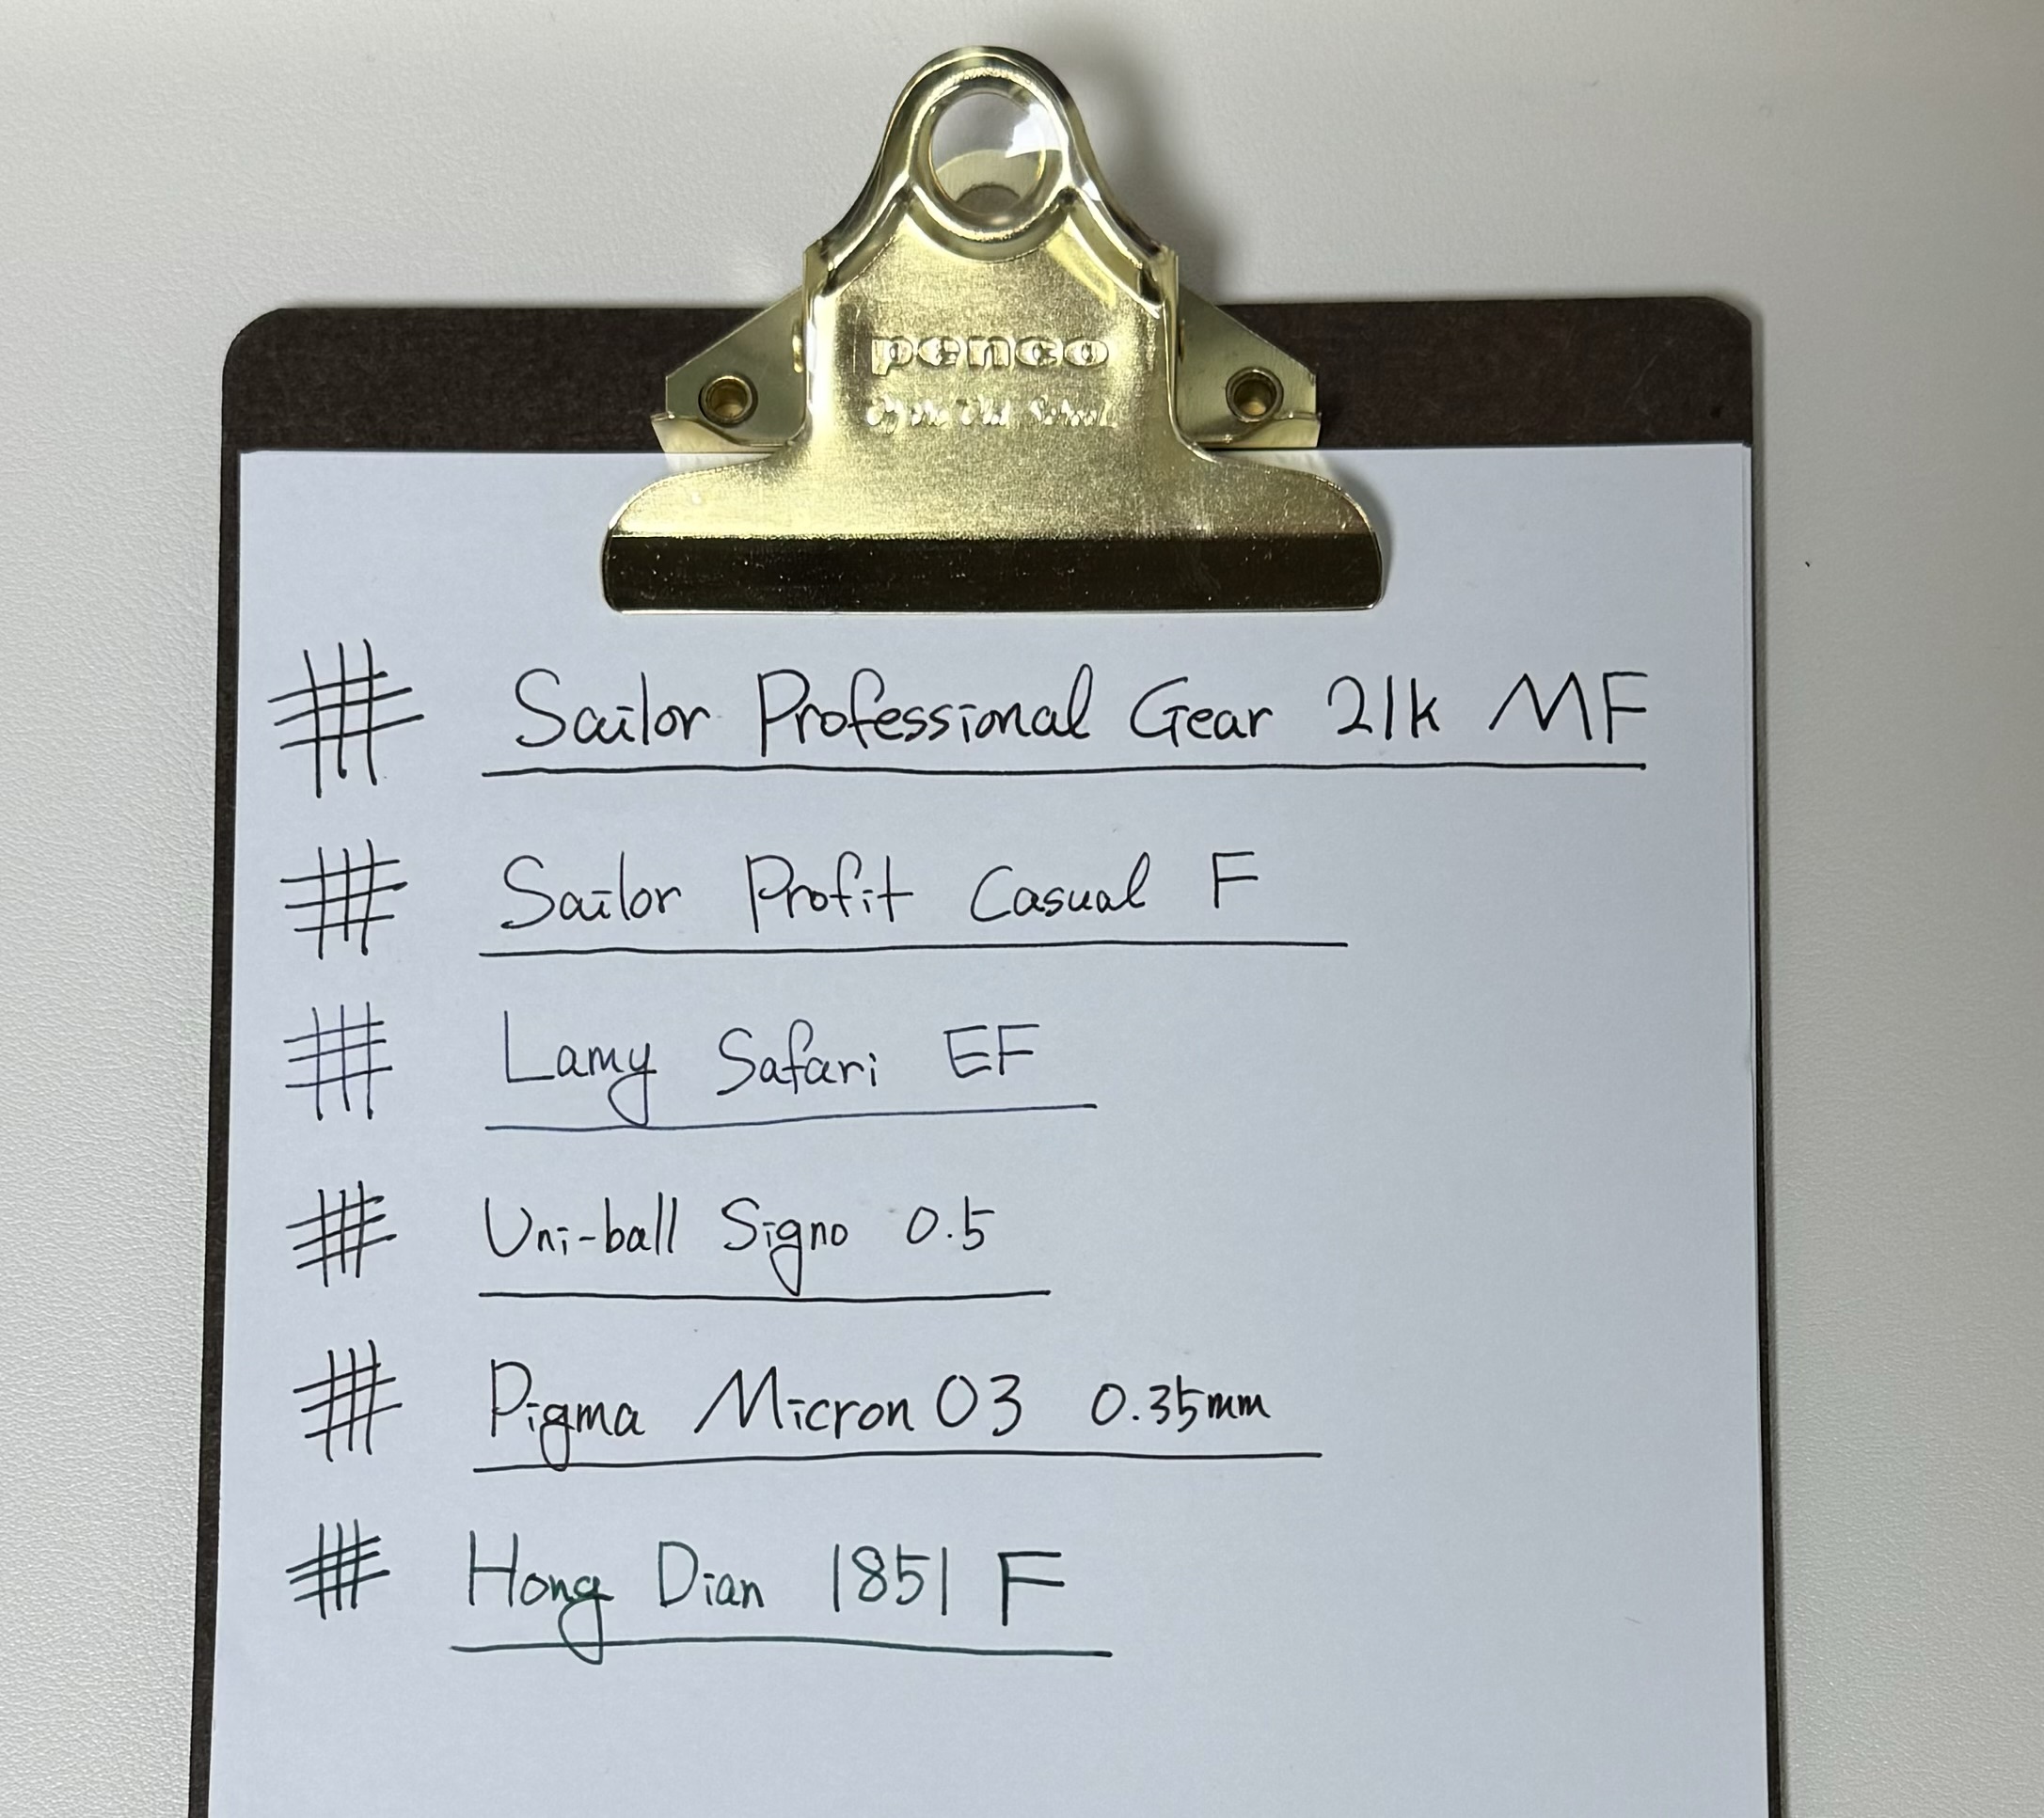 penco
by the Old School
Sailor Professional Gear 21k MF
Sailor Profit Casual F
Lamy Safari EF
Uni-ball Signo 0.5
Pigma Micron 03 0.35mm
Hong Dian 1851 F